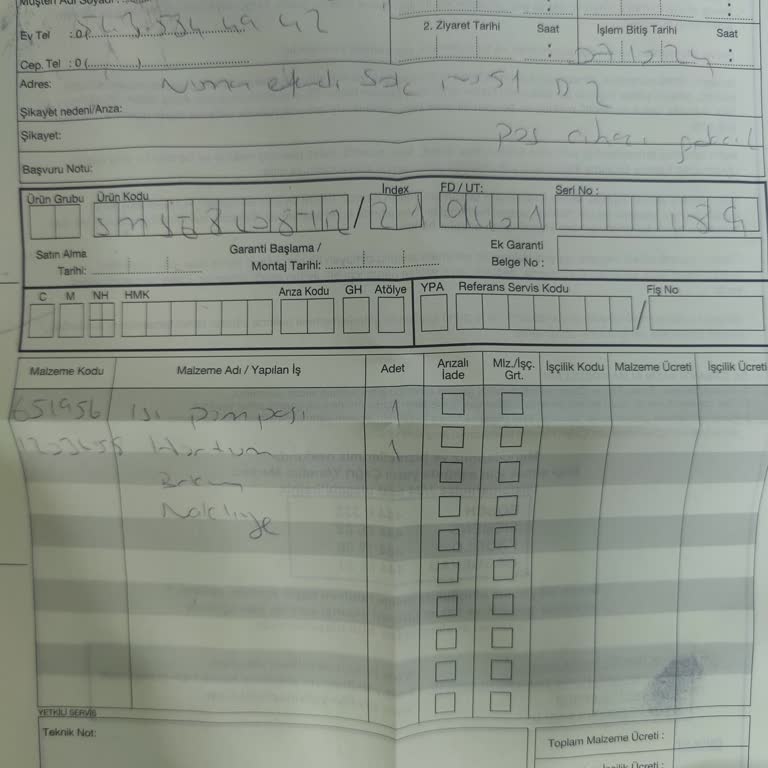 Müşteri Adı Soyadı
Ev Tel : 0(543.534 49 42
2. Ziyaret Tarihi Saat İşlem Bitiş Tarihi Saat
Cep. Tel : 0(............)
Adres: Numan efendi Sok no 51 D 2
Şikayet nedeni/Arıza:
Şikayet: pos cihazı
Başvuru Notu:
Ürün Grubu Ürün Kodu Index FD / UT: Seri No :
/ 21
Satın Alma Tarihi:
Garanti Başlama / Montaj Tarihi:
Ek Garanti Belge No :
C M NH HMK Arıza Kodu GH Atölye YPA Referans Servis Kodu Fiş No
/
Malzeme Kodu Malzeme Adı / Yapılan İş Adet Arızalı İade Mlz./İşç. Grt. İşçilik Kodu Malzeme Ücreti İşçilik Ücreti
651956 ısı pompası 1
Hortum 1
Bakım
Nakliye
YETKİLİ SERVİS
Teknik Not:
Toplam Malzeme Ücreti :
İşçilik Ücreti :